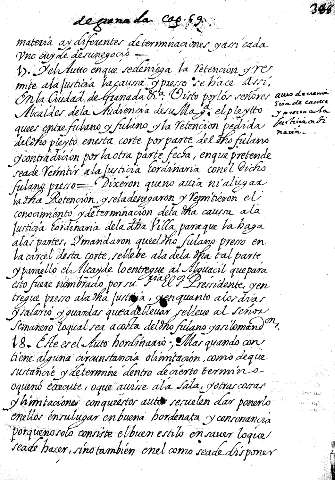 de granada Cap. 69.
materia ay diferentes determinaciones, y assi cada
Uno su Ley de su negocio
17. y el Auto en que se deniega la Retencion, y re
mite a la Justicia la causa y presso se hace Assi,
En la Ciudad de Granada &c. Visto por los señores
Alcaldes de la Audiencia de su Mag. el pleyto
que es entre fulano y fulano, y la Retencion pedida
del dho pleyto en esta corte por parte del dho fulano
y contradicion por la otra parte fecha, en que pretende
se a de Remitir a la Justicia hordinaria con el dicho
fulano preso = Dixeron que no avia ni a lugar
la dha Retencion, y se la denegaron y Remitieron el
conocimiento y determinacion de la dha causa a la
Justicia hordinaria de la dha Villa para que la haga
a las partes, y mandaron que el dho fulano preso en
la carcel desta corte, se llebe a la de la dha tal parte
y para ello el Alcayde lo entregue al Alguacil que para
esto fuere nombrado por su Presidente, y en
tregue preso a la dha Justicia, y en quanto a los dias
y salario, y guardas que a de llevar, se lleve al señor
semanero lo qual sea a costa del dho fulano, y assi lo mandaron,
18. Este es el Auto hordinario, Mas quando con
tiene alguna circunstancia o limitacion, como de que
sustancie y determine dentro de cierto termino
o que no execute, o que avise a la Sala, y otras cosas
y limitaciones con que estos autos se suelen dar ponerlo
en ellos en su lugar en buena hordenata y consonancia
porque no solo consiste el buen estilo en saver lo que se
a de hacer, sino tambien en el como se a de disponer
auto de remi
sion de causa
y preso a la
Justicia or
dinaria.